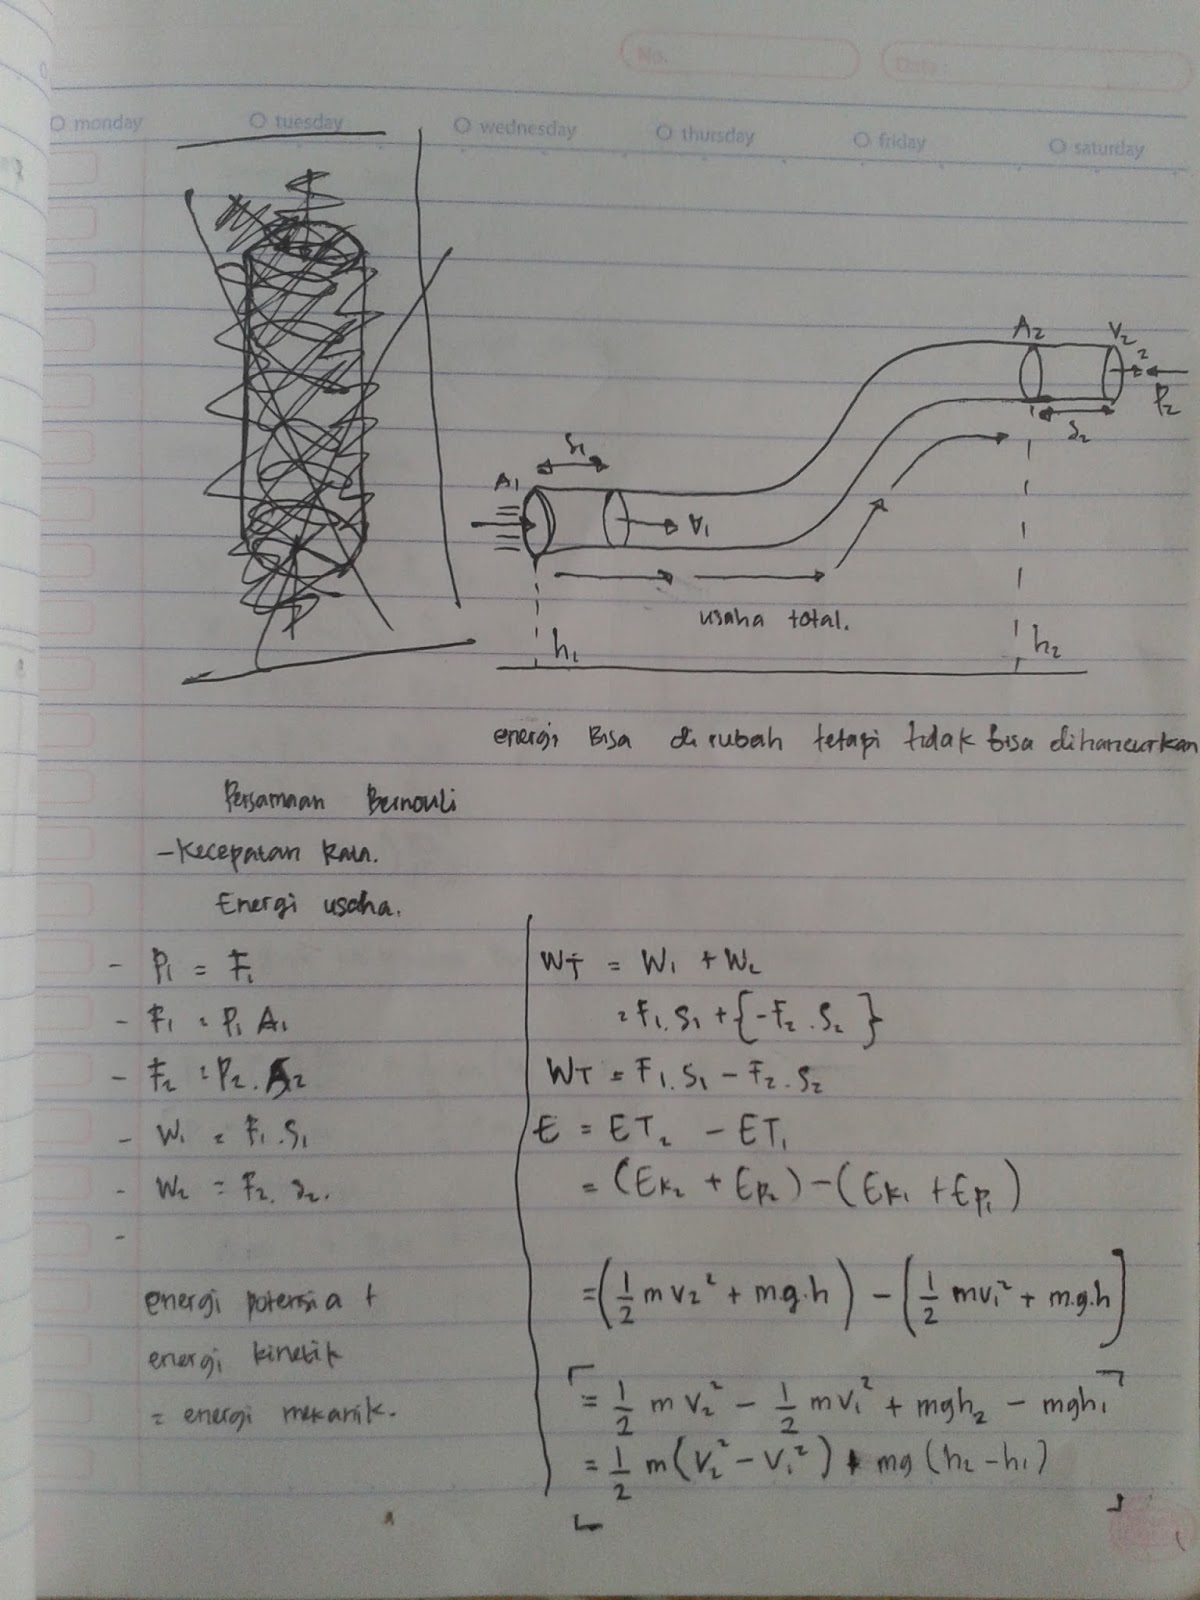 No.
Date:
monday
tuesday
wednesday
thursday
friday
saturday
A2 V2
2
P2
S2
S1
A1
V1
usaha total.
h1
h2
energi Bisa di rubah tetapi tidak bisa dihancurkan
Persamaan Bernouli
- Kecepatan Rata.
Energi usaha.
- P1 = F1
- F1 = P1 A1
- F2 = P2. A2
- W1 = F1. S1
- W2 = F2. S2.
-
energi potensia +
energi kinetik
= energi mekanik.
WT = W1 + W2
= F1. S1 + {-F2 . S2}
WT = F1. S1 - F2. S2
E = ET2 - ET1
= (Ek2 + Ep2) - (Ek1 + Ep1)
= (1/2 m v2² + m g.h) - (1/2 mv1² + m.g.h]
= 1/2 m v2² - 1/2 m v1² + mgh2 - mgh1
= 1/2 m (v2² - v1²) + mg (h2 - h1)